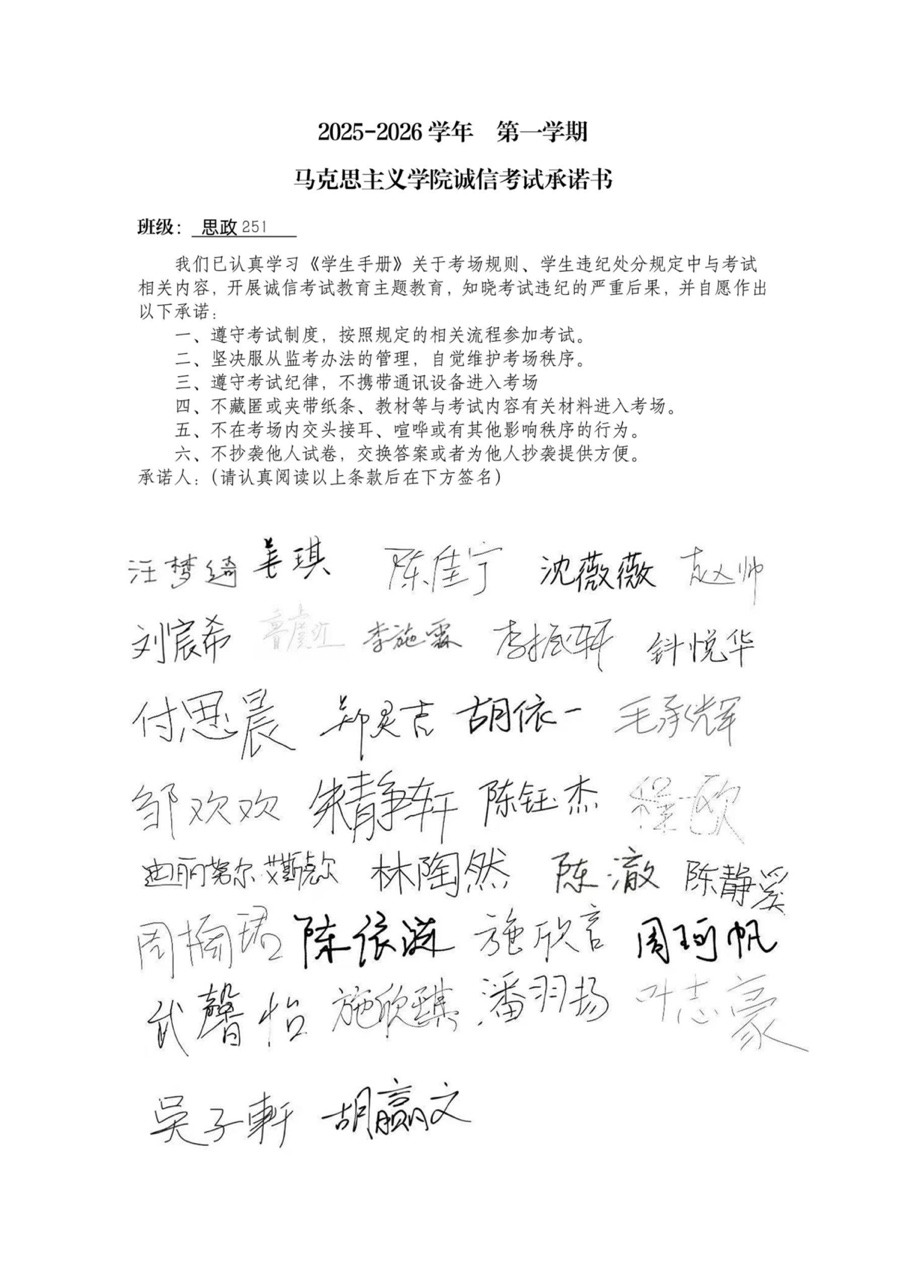 2025-2026 学年　第一学期
马克思主义学院诚信考试承诺书
班级： 思政 251
我们已认真学习《学生手册》关于考场规则、学生违纪处分规定中与考试
相关内容，开展诚信考试教育主题教育，知晓考试违纪的严重后果，并自愿作出
以下承诺：
一、遵守考试制度，按照规定的相关流程参加考试。
二、坚决服从监考办法的管理，自觉维护考场秩序。
三、遵守考试纪律，不携带通讯设备进入考场
四、不藏匿或夹带纸条、教材等与考试内容有关材料进入考场。
五、不在考场内交头接耳、喧哗或有其他影响秩序的行为。
六、不抄袭他人试卷，交换答案或者为他人抄袭提供方便。
承诺人：（请认真阅读以上条款后在下方签名）
汪梦绮 姜琪 陈佳宁 沈薇薇 赵义帅
刘宸希 李施霖 李振轩 钭悦华
付思晨 郑灵吉 胡依一 毛承辉
邹欢欢 朱静轩 陈钰杰 程一欧
迪丽努尔 林陶然 陈澈 陈静奚
周楠珺 陈依 施欣言 周珂帆
武馨怡 施欣琪 潘羽扬 叶志豪
吴子軒 胡赢文